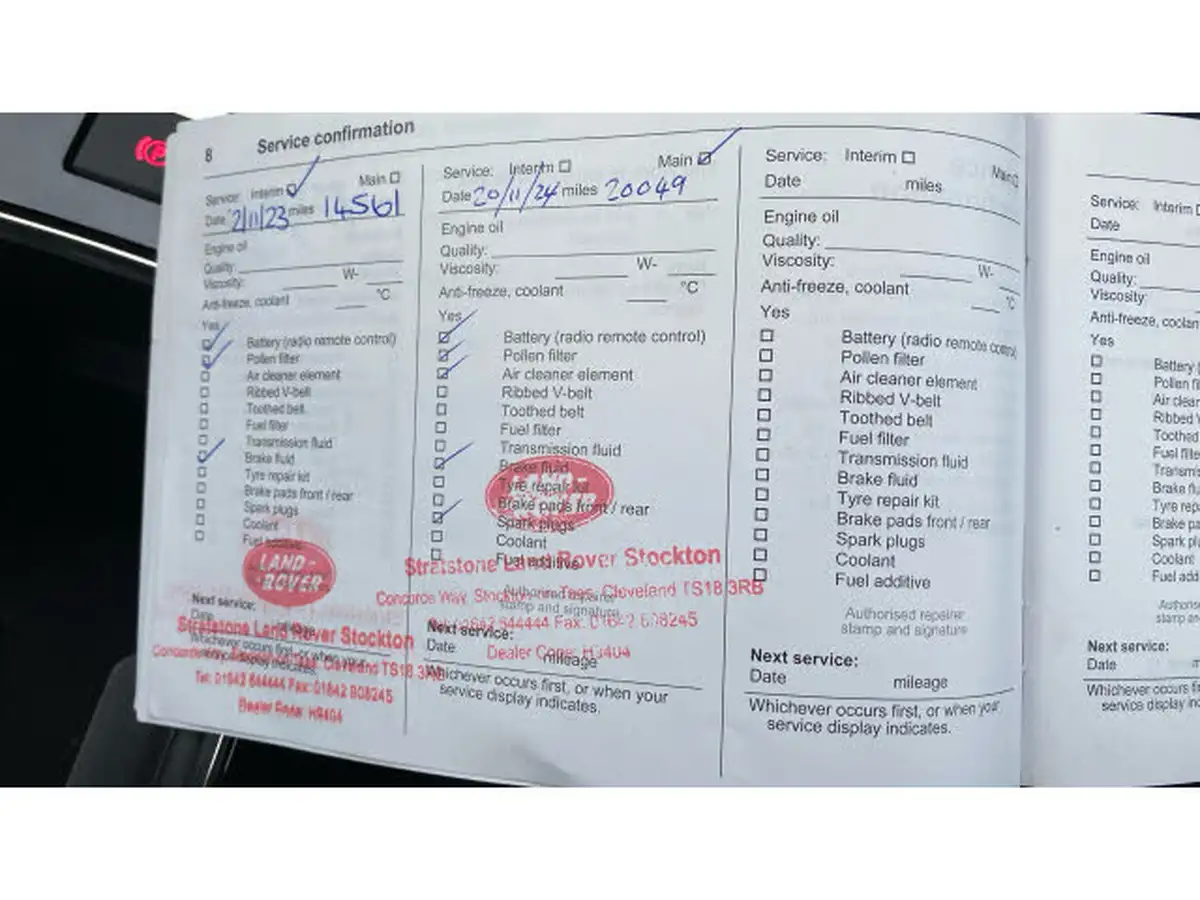 8 Service confirmation
Service: Interim Main
Date 2/11/23 miles 14561
Engine oil
Quality:
Viscosity: W-
Anti-freeze, coolant °C
Yes
Battery (radio remote control)
Pollen filter
Air cleaner element
Ribbed V-belt
Toothed belt
Fuel filter
Transmission fluid
Brake fluid
Tyre repair kit
Brake pads front / rear
Spark plugs
Coolant
Fuel additive
LAND-
-ROVER
Next service:
Date
Stratstone Land Rover Stockton
Whichever occurs first, or when your
service display indicates.
Cleveland TS18 3RB
Tel: 01642 644444 Fax: 01642 608245
Dealer Code: H9404
Service: Interim Main
Date 20/11/24 miles 20049
Engine oil
Quality:
Viscosity: W-
Anti-freeze, coolant °C
Yes
Battery (radio remote control)
Pollen filter
Air cleaner element
Ribbed V-belt
Toothed belt
Fuel filter
Transmission fluid
Brake fluid
Tyre repair kit
Brake pads front / rear
Spark plugs
Coolant
Fuel additive
LAND-
Stratstone Land Rover Stockton
Authorised repairer
stamp and signature
Concorde Way, Stockton Tees, Cleveland TS18 3RB
644444 Fax: 01642 608245
Next service:
Dealer Code: H9404
Date mileage
Whichever occurs first, or when your
service display indicates.
Service: Interim Main
Date miles
Engine oil
Quality:
Viscosity: W-
Anti-freeze, coolant °C
Yes
Battery (radio remote control)
Pollen filter
Air cleaner element
Ribbed V-belt
Toothed belt
Fuel filter
Transmission fluid
Brake fluid
Tyre repair kit
Brake pads front / rear
Spark plugs
Coolant
Fuel additive
Authorised repairer
stamp and signature
Next service:
Date mileage
Whichever occurs first, or when your
service display indicates.
Service: Interim
Date
Engine oil
Quality:
Viscosity:
Anti-freeze, coolant
Yes
Battery (
Pollen
Air
Ribbed
Toothed
Fuel
Brake
Tyre
Brake
Spark
Coolant
Fuel
Next service:
Date
Whichever occurs
service display